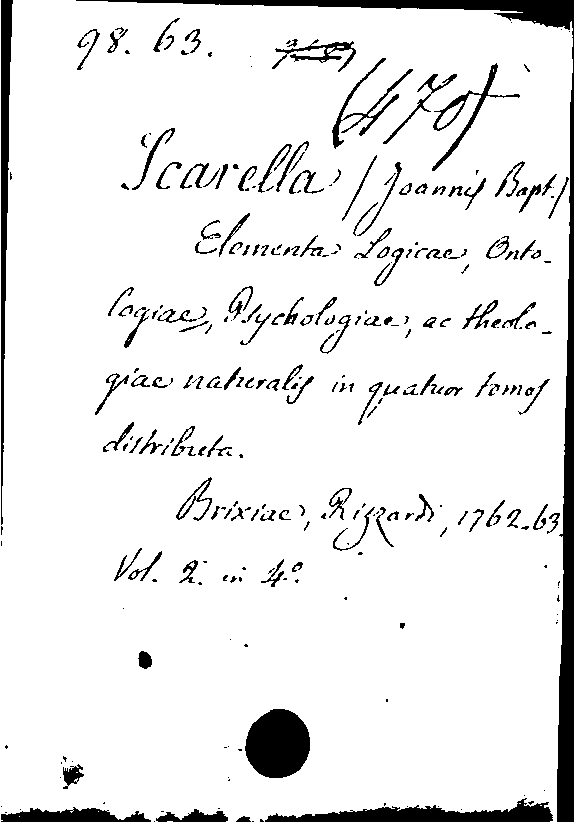 98. 63.
(470)
Scarella (Joannis Bapt.)
Elementa Logicae, Onto-
logiae, Psychologiae, ac theolo-
giae naturalis in quatuor tomos
distributa.
Brixiae, Rizzardi, 1762-63.
Vol. 2. in 4.°